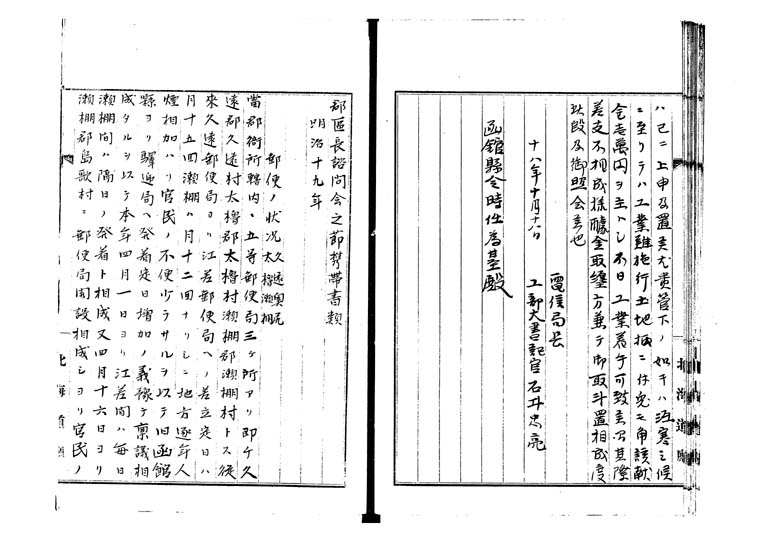 ハ已ニ上申及置美尤貴管下ノ如キハ沍寒之候
ニ至リテハ工業難施行土地柄ニ付兎モ角該献
金壱萬円ヲ主トシ不日工業着手可致美ニ付其際
差支不相成様醵金取纏方兼テ御取斗置相成度
此段及御照会美也
電信局長
十八年十月十六日 工部大書記官石井忠亮
函館縣令時任為基殿
郡區長諮問会之節携帯書類
明治十九年
郵便ノ状况 久遠奥尻 太櫓瀬棚
當郡衙所轄内ニ五等郵便局三ケ所アリ即ケ久
遠郡久遠村太櫓郡太櫓村瀬棚郡瀬棚村トス従
來久遠郵便局ヨリ江差郵便局ヘノ差立定日ハ
月十五回瀬棚ハ月十二回ナリシニ地方逐年人
煙相加ハリ官民ノ不便少ラサルヲ以テ旧函館
縣ヨリ驛逓局ヘ発着定日増加ノ義豫テ稟議相
成タルヲ以テ本年四月一日ヨリ江差間ハ毎日
瀬棚間ハ隔日ノ発着ト相成又四月十六日ヨリ
瀬棚郡島歌村ニ郵便局開設相成シヨリ官民ノ
北海道廳